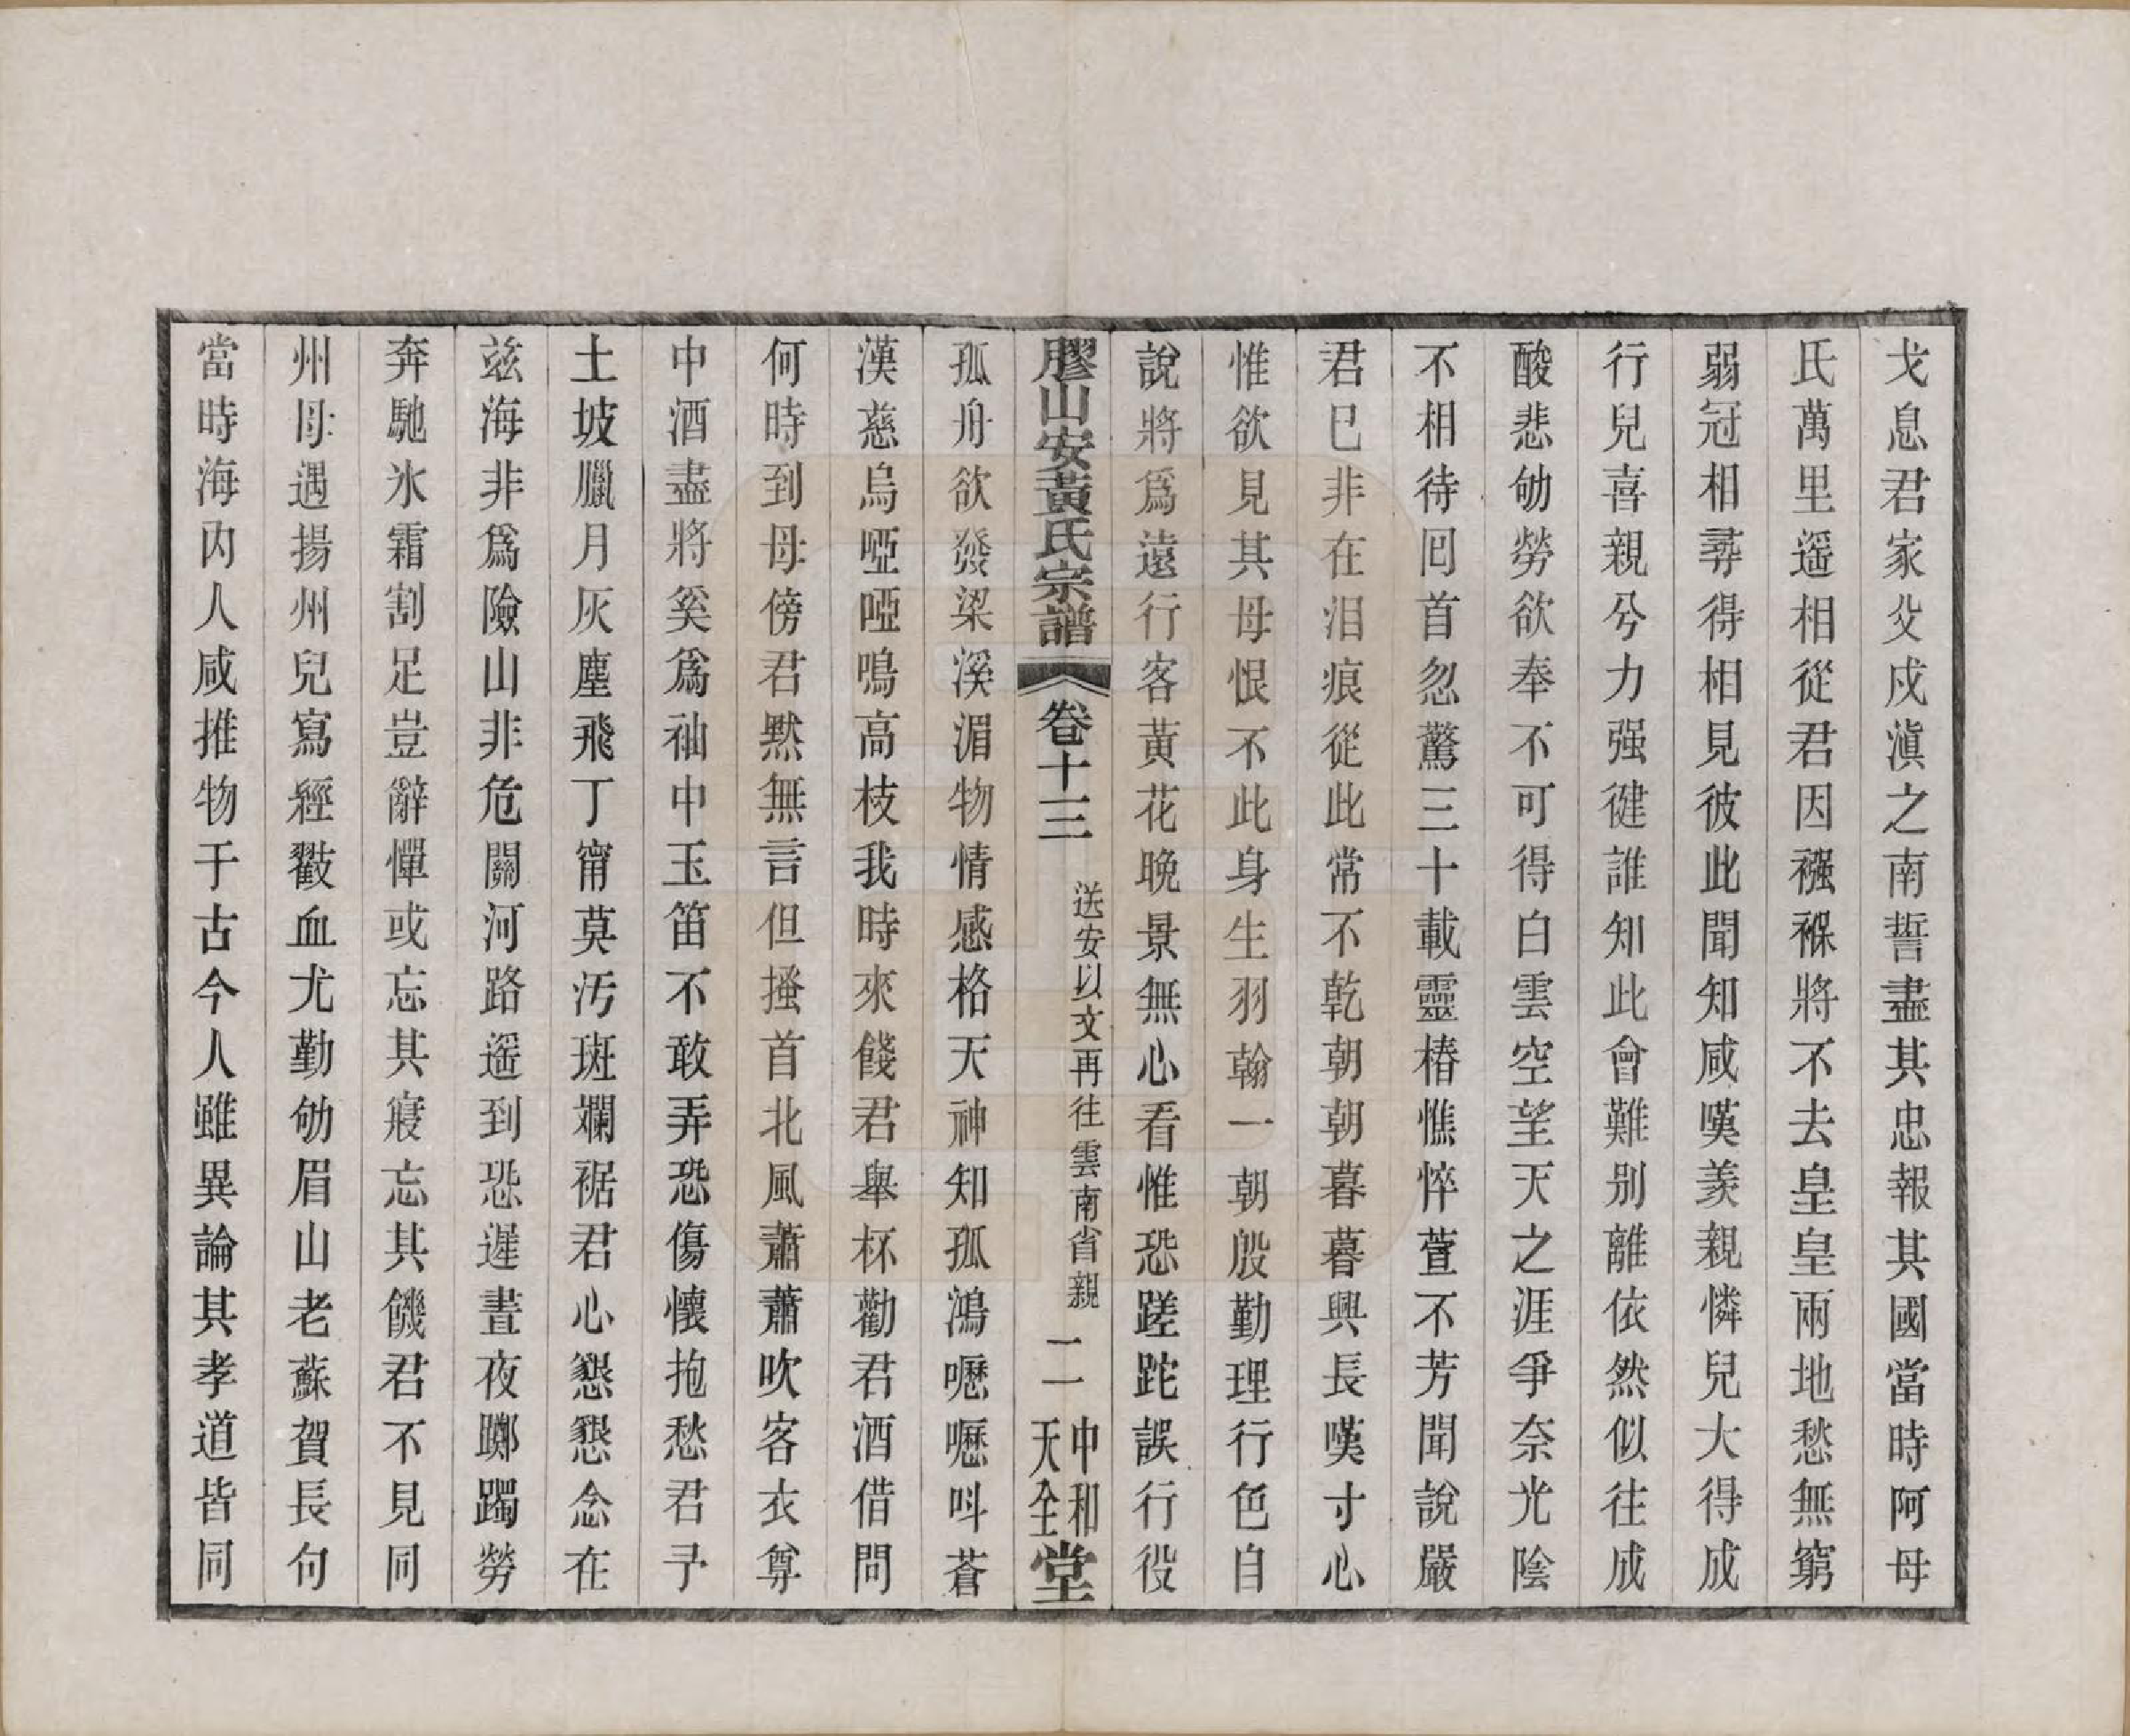 戈息君家父戍滇之南誓盡其忠報其國當時阿母
氏萬里遥相從君因襁褓將不去皇皇兩地愁無窮
弱冠相尋得相見彼此聞知咸嘆羨親憐兒大得成
行兒喜親兮力强健誰知此會難别離依然似往成
酸悲劬勞欲奉不可得白雲空望天之涯爭奈光陰
不相待囘首忽驚三十載靈椿憔悴萱不芳聞說嚴
君已非在泪痕從此常不乾朝朝暮暮興長嘆寸心
惟欲見其母恨不此身生羽翰一朝殷勤理行色自
說將爲遠行客黃花晚景無心看惟恐蹉跎誤行役
膠山安黃氏宗譜 卷十三 送安以文再往雲南省親 二 中和 天全 堂
孤舟欲發梁溪湄物情感格天神知孤鴻嚦嚦呌蒼
漢慈烏啞啞鳴高枝我時來餞君舉杯勸君酒借問
何時到母傍君默無言但搔首北風蕭蕭吹客衣尊
中酒盡將奚爲袖中玉笛不敢弄恐傷懷抱愁君子
土坡臘月灰塵飛丁甯莫汚斑斕裾君心懇懇念在
兹海非爲險山非危關河路遥到恐遲晝夜躑躅勞
奔馳氷霜割足豈辭憚或忘其寢忘其饑君不見同
州母遇揚州兒寫經戳血尤勤劬眉山老蘇賀長句
當時海内人咸推物于古今人雖異論其孝道皆同